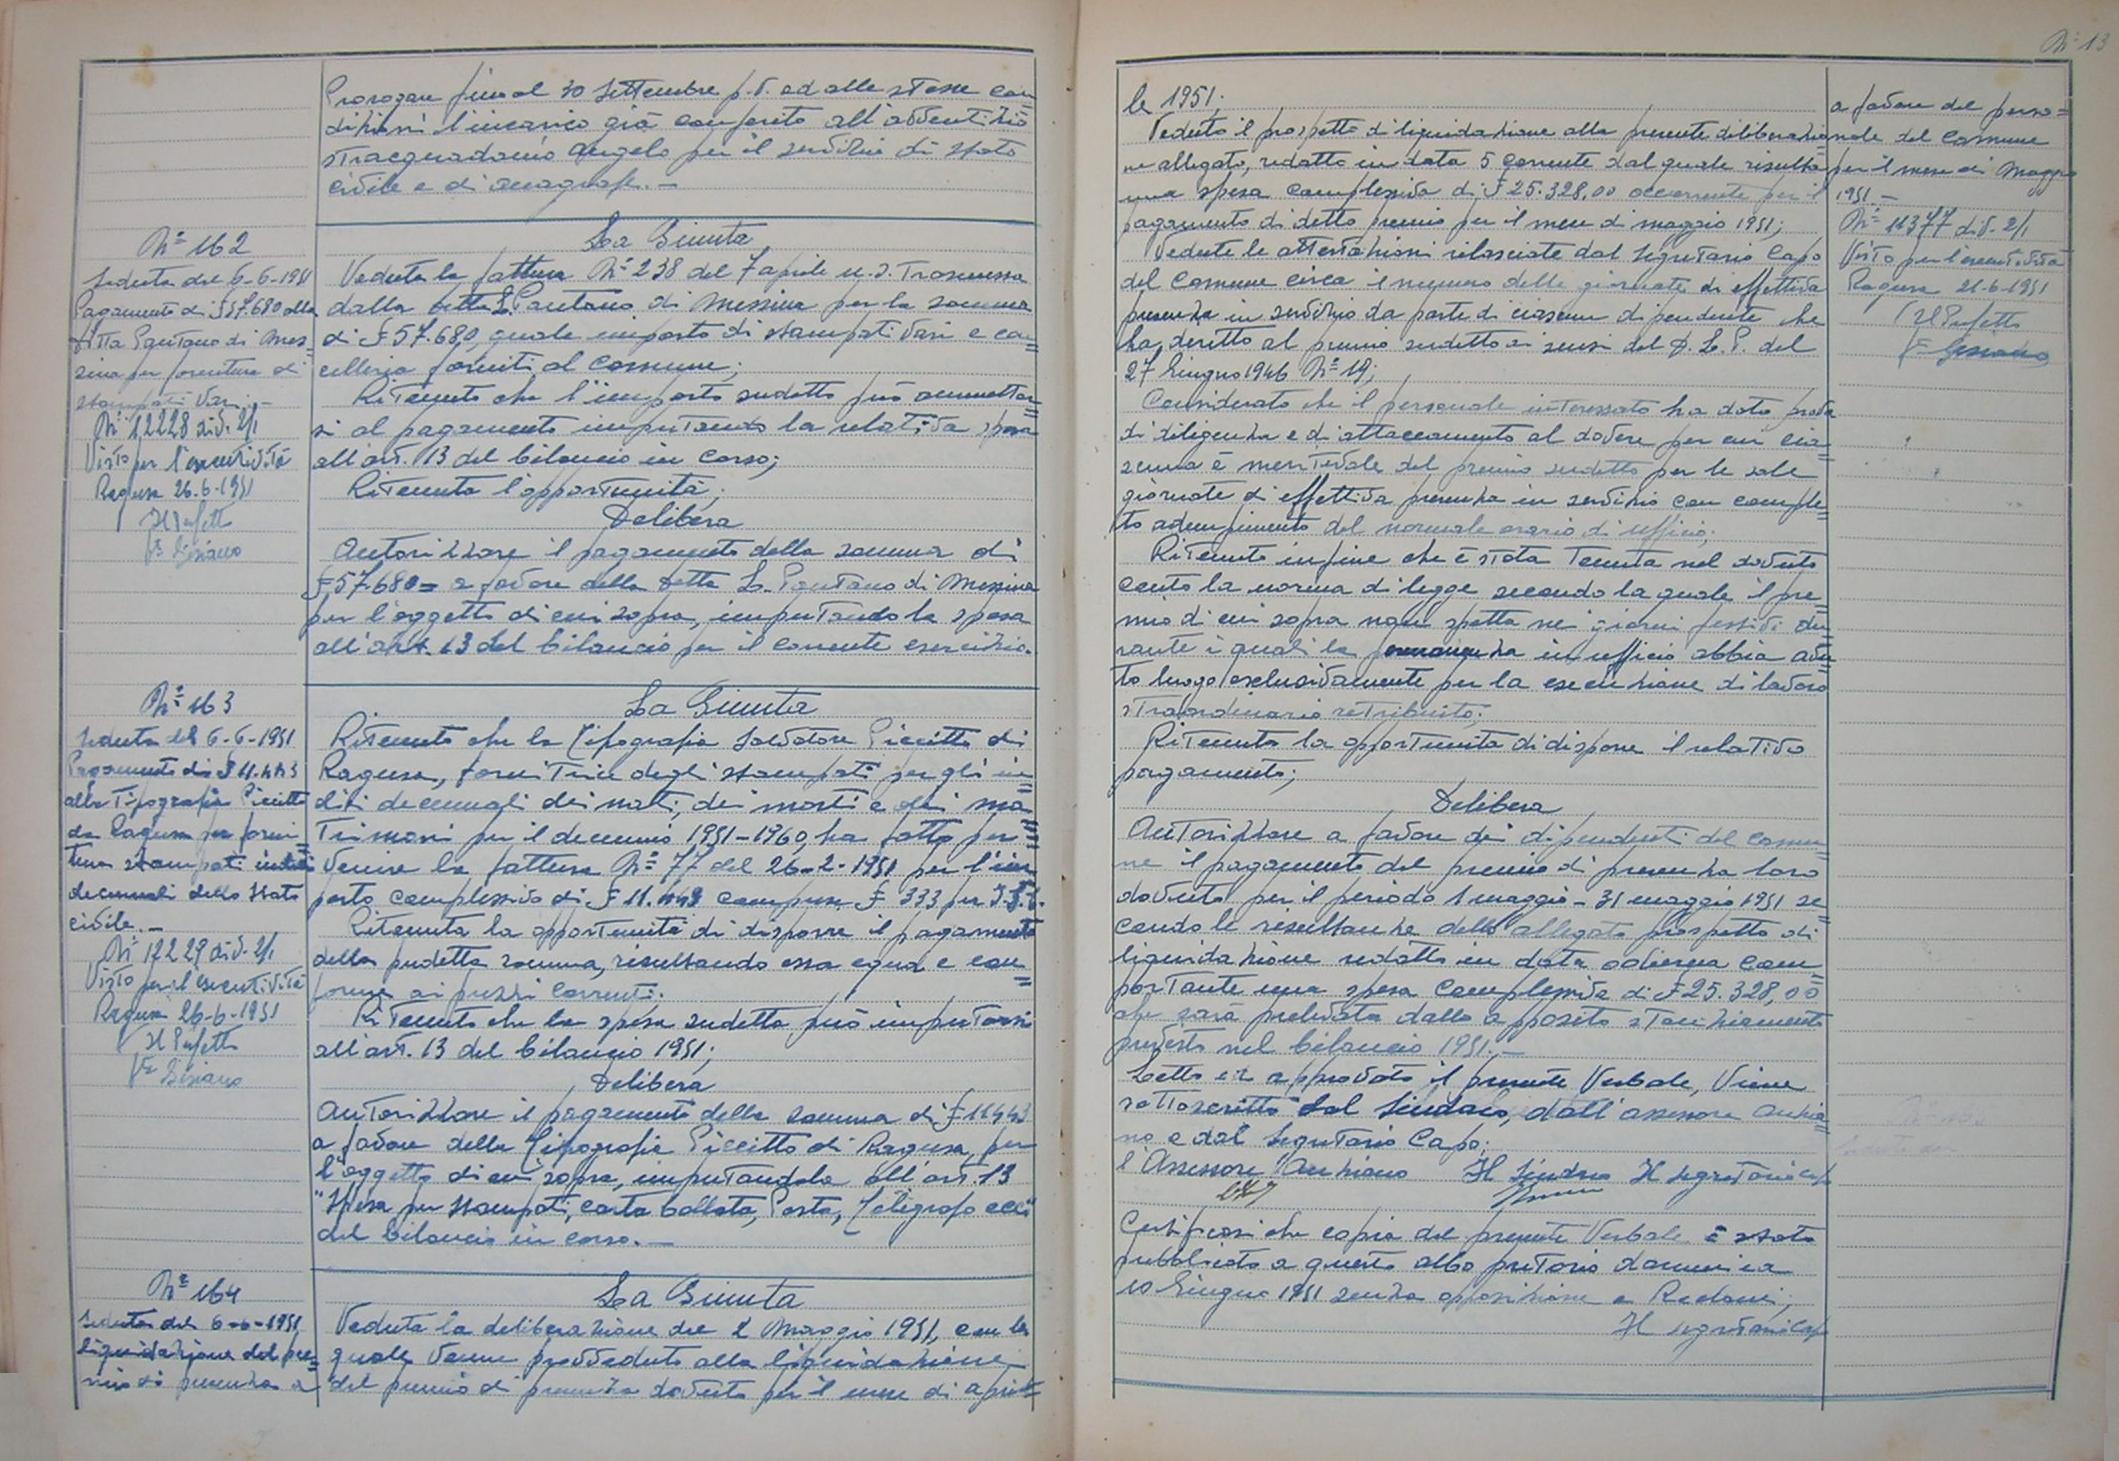 Prorogare fino al 30 Settembre p.v. ed alle stesse con=
dizioni l'incarico già conferito all'avventizio
Stracquadanio Angelo per il servizio di Stato
civile e di anagrafe.—
Nº 162
Seduta del 6-6-1951
Pagamento di £57.680 alla
Ditta Pantano di Mes=
sina per fornitura di
stampati vari.—
Nº 12228 div. 2/1
Visto per l'esecutività
Ragusa 26-6-1951
Il Prefetto
La Giunta
Veduta la fattura Nº 238 del 7 aprile u.s. trasmessa
dalla Ditta L. Pantano di Messina per la somma
di £57.680, quale importo di stampati vari e can=
celleria forniti al Comune;
Ritenuto che l'importo sudetto può ammetter=
si al pagamento imputando la relativa spesa
all'art. 13 del bilancio in corso;
Ritenuta l'opportunità;
Delibera
Autorizzare il pagamento della somma di
£57.680= a favore della Ditta L. Pantano di Messina
per l'oggetto di cui sopra, imputando la spesa
all'art. 13 del bilancio per il corrente esercizio.
Nº 163
Seduta del 6-6-1951
Pagamento di £ 11.443
alla Tipografia Piccitto
da Ragusa per forni=
tura stampati indici
decennali dello Stato
civile.—
Nº 12229 div. 2/1
Visto per l'esecutività
Ragusa 26-6-1951
Il Prefetto
La Giunta
Ritenuto che la Tipografia Salvatore Piccitto di
Ragusa, fornitrice degli stampati per gli in=
dici decennali dei nati, dei morti e dei ma=
trimoni per il decennio 1951-1960, ha fatto per=
venire la fattura Nº 77 del 26-2-1951 per l'im=
porto complessivo di £ 11.443 comprese £ 333 per I.G.E.
Ritenuta la opportunità di disporre il pagamento
della predetta somma, risultando essa equa e con=
forme ai prezzi correnti.
Ritenuto che la spesa sudetta può imputarsi
all'art. 13 del bilancio 1951;
Delibera
Autorizzare il pagamento della somma di £11443
a favore della Tipografia Piccitto di Ragusa, per
l'oggetto di cui sopra, imputandola all'art. 13
"Spesa per stampati, carta bollata, Posta, Telegrafo ecc."
del bilancio in corso.—
Nº 164
Seduta del 6-6-1951
Liquidazione del pre=
mio di presenza a
La Giunta
Veduta la deliberazione del 2 Maggio 1951, con la
quale venne provveduto alla liquidazione
del premio di presenza dovuto per il mese di apri=
Nº 13
le 1951;
Veduto il prospetto di liquidazione alla presente deliberazio
ne allegato, redatto in data 5 corrente dal quale risulta
una spesa complessiva di £ 25.328,00 occorrente per il
pagamento di detto premio per il mese di maggio 1951;
Vedute le attestazioni rilasciate dal Segretario Capo
del Comune circa il numero delle giornate di effettiva
presenza in servizio da parte di ciascun dipendente che
ha diritto al premio sudetto ai sensi del D.L.P. del
27 Giugno 1946 Nº 19;
Considerato che il personale interessato ha dato prova
di diligenza e di attaccamento al dovere per cui cia=
scuno è meritevole del premio sudetto per le sole
giornate di effettiva presenza in servizio con comple=
to adempimento del normale orario di ufficio;
Ritenuto infine che è stata tenuta nel dovuto
conto la norma di legge secondo la quale il pre=
mio di cui sopra non spetta nei giorni festivi du=
rante i quali la permanenza in ufficio abbia avu=
to luogo esclusivamente per la esecuzione di lavoro
straordinario retribuito;
Ritenuta la opportunità di disporre il relativo
pagamento;
Delibera
Autorizzare a favore dei dipendenti del Comu=
ne il pagamento del premio di presenza loro
dovuto per il periodo 1 maggio - 31 maggio 1951 se=
condo le risultanze dello allegato prospetto di
liquidazione redatto in data odierna com=
portante una spesa complessiva di £25.328,00
che sarà prelevata dallo apposito stanziamento
previsto nel bilancio 1951.—
Letto ed approvato il presente Verbale, viene
sottoscritto dal Sindaco, dall'assessore anzia=
no e dal Segretario Capo.
l'Assessore Anziano Il Sindaco Il Segretario Capo
Certificasi che copia del presente Verbale è stata
pubblicata a questo albo pretorio domenica
10 Giugno 1951 senza opposizione o Reclami;
Il Segretario Capo
a favore del perso=
nale del Comune
per il mese di Maggio
1951.—
Nº 11377 div. 2/1
Visto per l'esecutività
Ragusa 21-6-1951
Il Prefetto